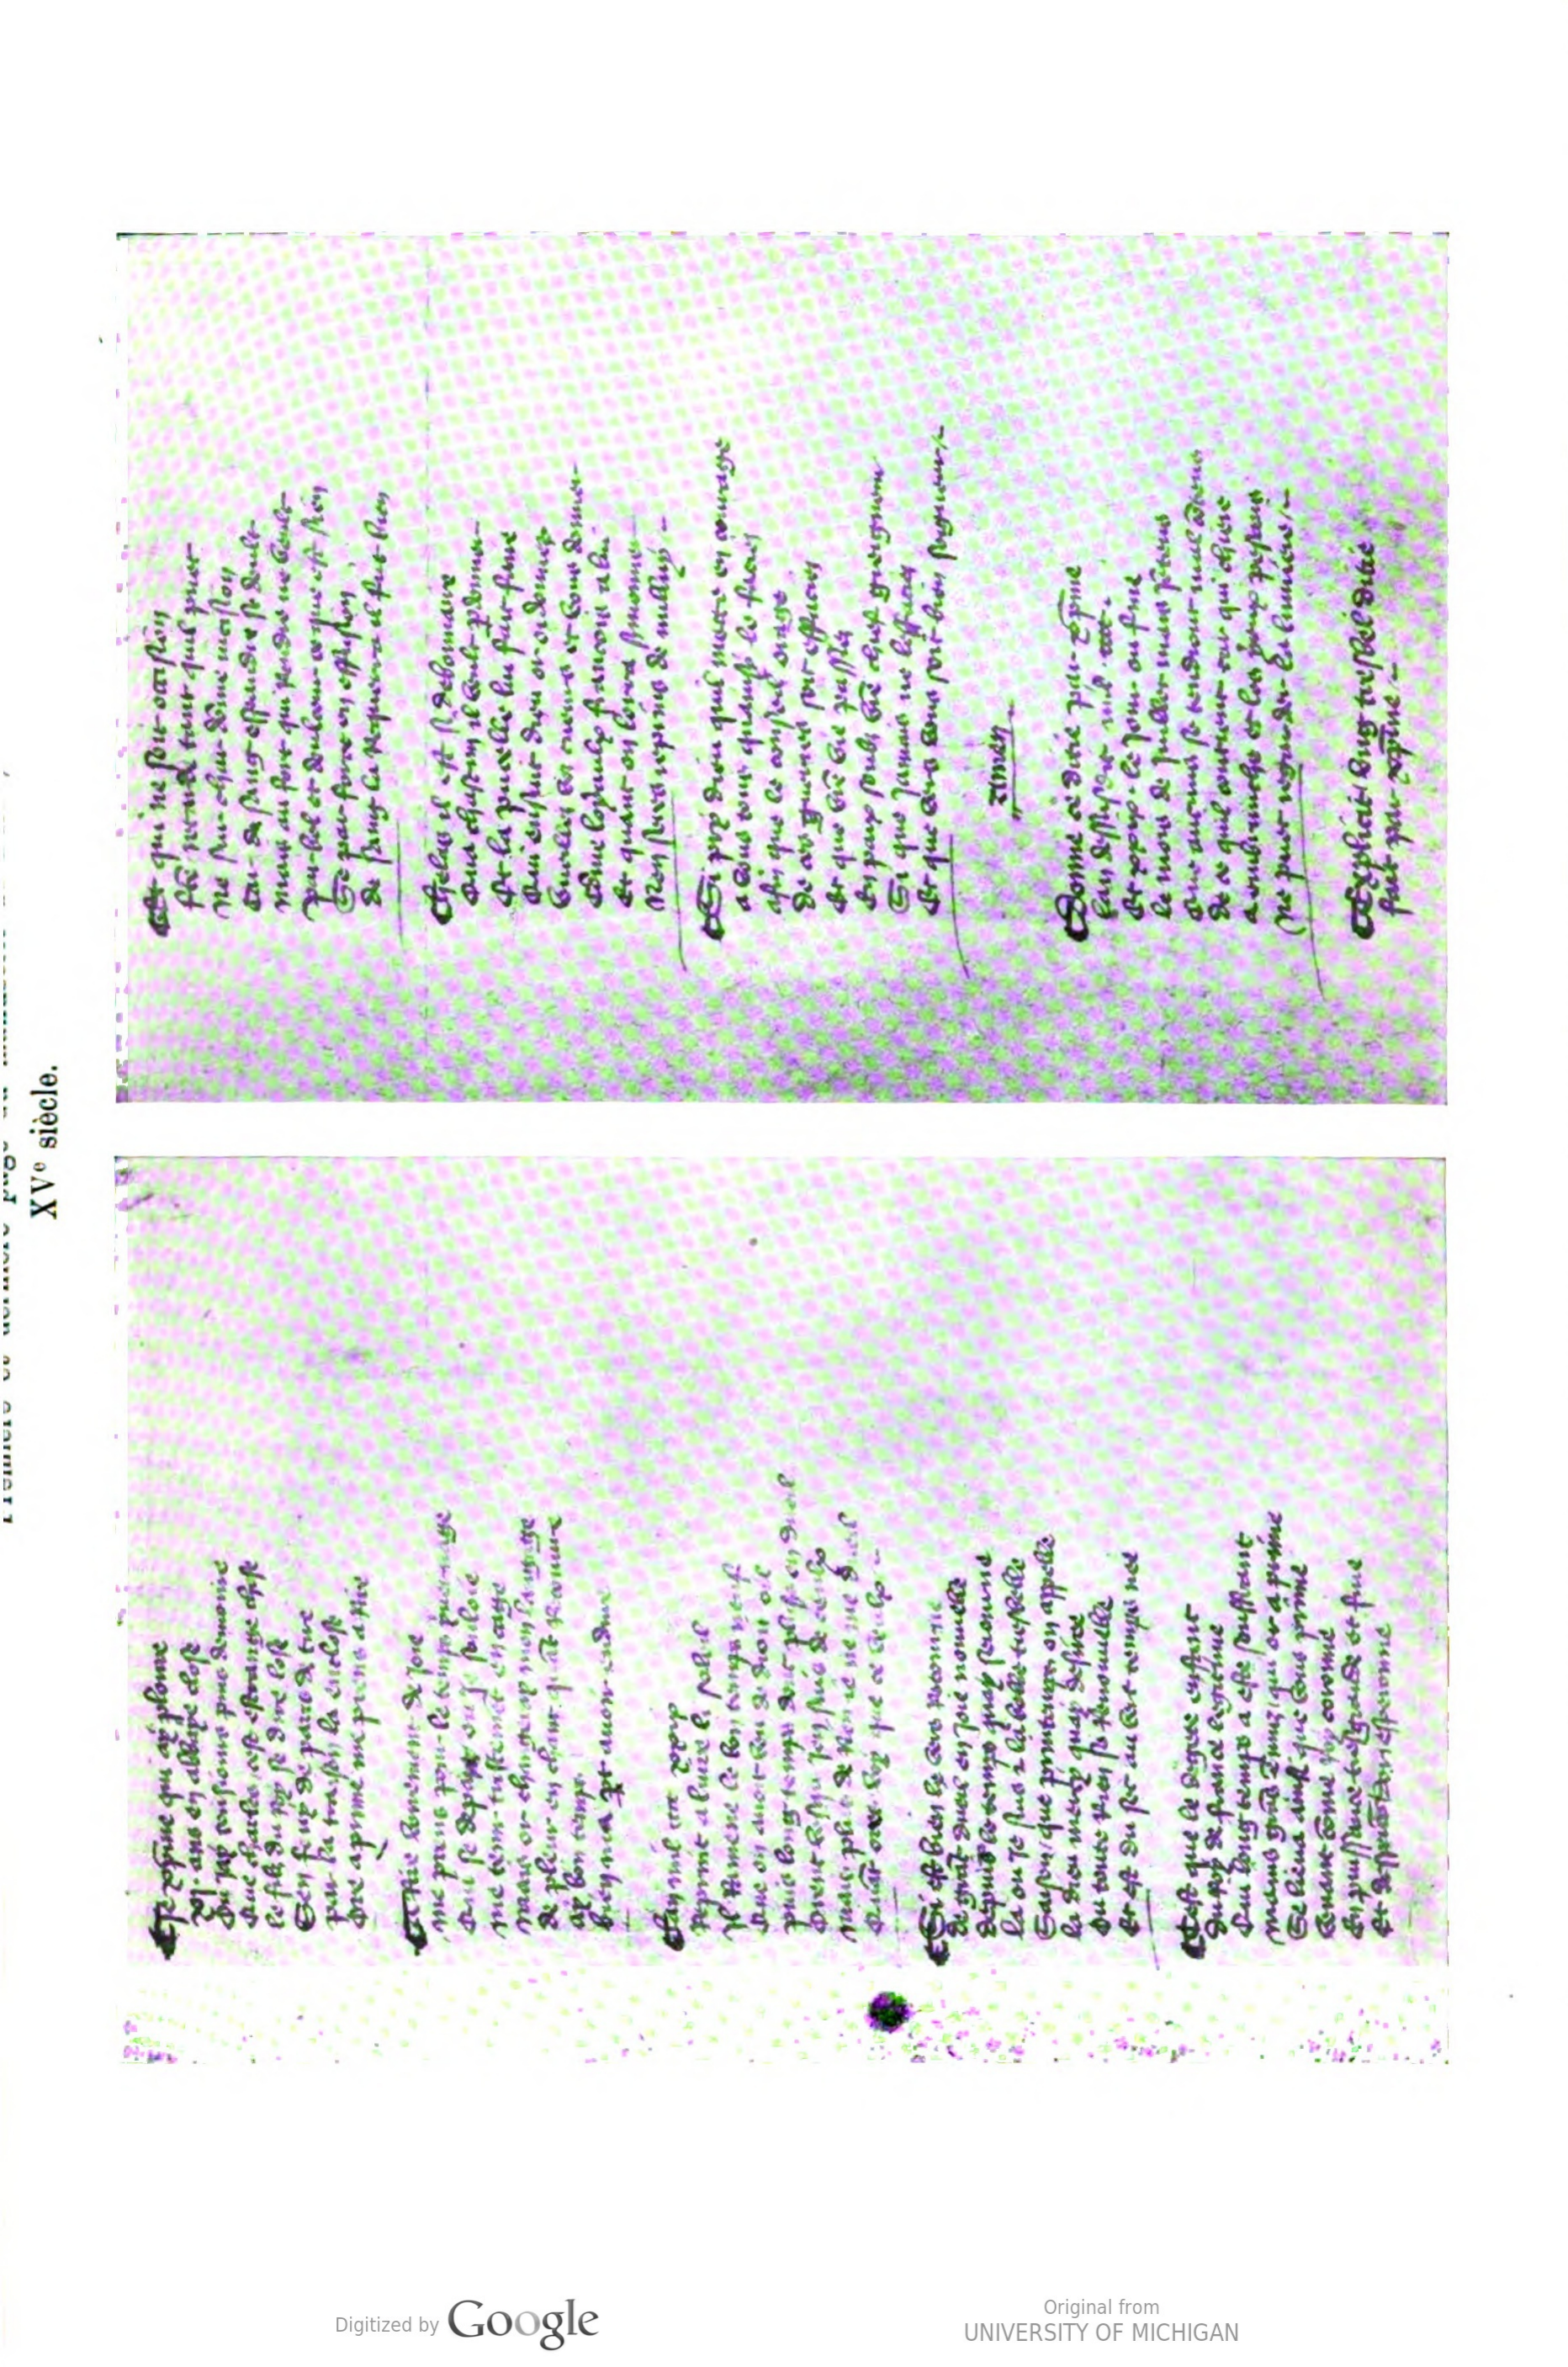 Je xpine qui ay plouré
xi ans en abbaye close
Ou jay tousiours puis demouré
Que charles cest estrange chose
Le filz du roy se dire lose
Sen fouy de paris de tire
Par la traison la enclose
Ore a prime me prens a rire
A rire bonement de joie
Me prens pour le temps yvernage
Qui se depart ou je souloie
Me tenir tristement en cage
Mais or changeray mon langage
De pleur en chant quant recouvré
Ay bon temps
Bien ma part avoir enduré
Lan mil xxix
Reprint a luire li soleil
Il ramene le bon temps neuf
Que on avoit veu de droit oeil
Puis long temps dont plusers en dueil
Orent jen suis de ceulx
Mais plus de rien je ne me dueil
Quant ores voy que je veulx
Si est bien le vers retourné
De grant dueil en joie nouvelle
Depuis le temps quay seiourné
La ou je suis la tresbelle
Saison que printemps on appelle
La dieu mercy quay desiree
Ou toute rien se renouvelle
Et est du sec au vert temps nee
Cest que le degeté enfant
Du roy de france legitime
Qui long temps a esté souffrant
Mains grans ennuiz qui or aprime
Se lieva ainsi que vous prime
Venant comme roy coronné
En puissance tresgrande et fine
Et desperons dor esperonné
Et qui ne soit occasion
tant quil puet
Ne dune nacion
de sang espandre se deult
Mais au fort qui rendre ne veult
Par bel et doulceur ce que est sien
Se par force en effusion
De sang le requiert il fait bien
Helas il est si debonnaire
Qua chascun il veult pardonner
Et la pucelle lui fait faire
Qui ensuit dieu or ordonner
Vueillez voz cueurs et vous donner
Comme loyaulx francois a lui
Et quant on lorra sermonner
Nen serez reprins de nulluy
Si pry dieu quil mecte en courage
A vous tous quainsi le faciez
Afin que le conseil orage
De ces guerres soit effaciez
Et que vre vie passiez
En paix soubz vre chief greigneur
Si que jamais ne loffensiez
Et que vers vous soit bien seigneur
Amen
Donné ce ditié par xpine
Lan dessusdit mil cccc
Et xxix le jour ou fine
Le mois de juillet mais jentens
Que aucuns se tendront mal contens
De ce quil contient car qui chiere
A embrunche et les yeux pesans
Ne puet regarder la lumiere
Explicit ung tresbel ditié
fait par xpine
XVe siècle.
Digitized by Google
Original from
UNIVERSITY OF MICHIGAN